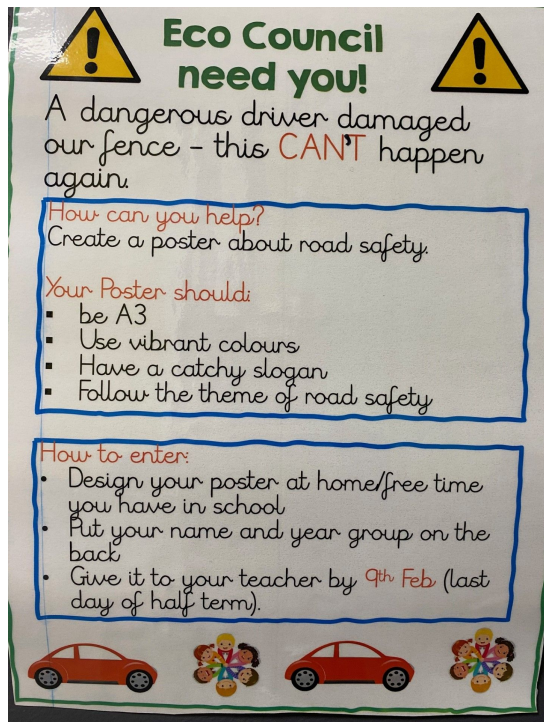 Eco Council
need you!
A dangerous driver damaged
our fence - this CAN'T happen
again.
How can you help?
Create a poster about road safety.
Your Poster should:
▪ be A3
▪ Use vibrant colours
▪ Have a catchy slogan
▪ Follow the theme of road safety
How to enter:
• Design your poster at home/free time
you have in school
• Put your name and year group on the
back
• Give it to your teacher by 9th Feb (last
day of half term).